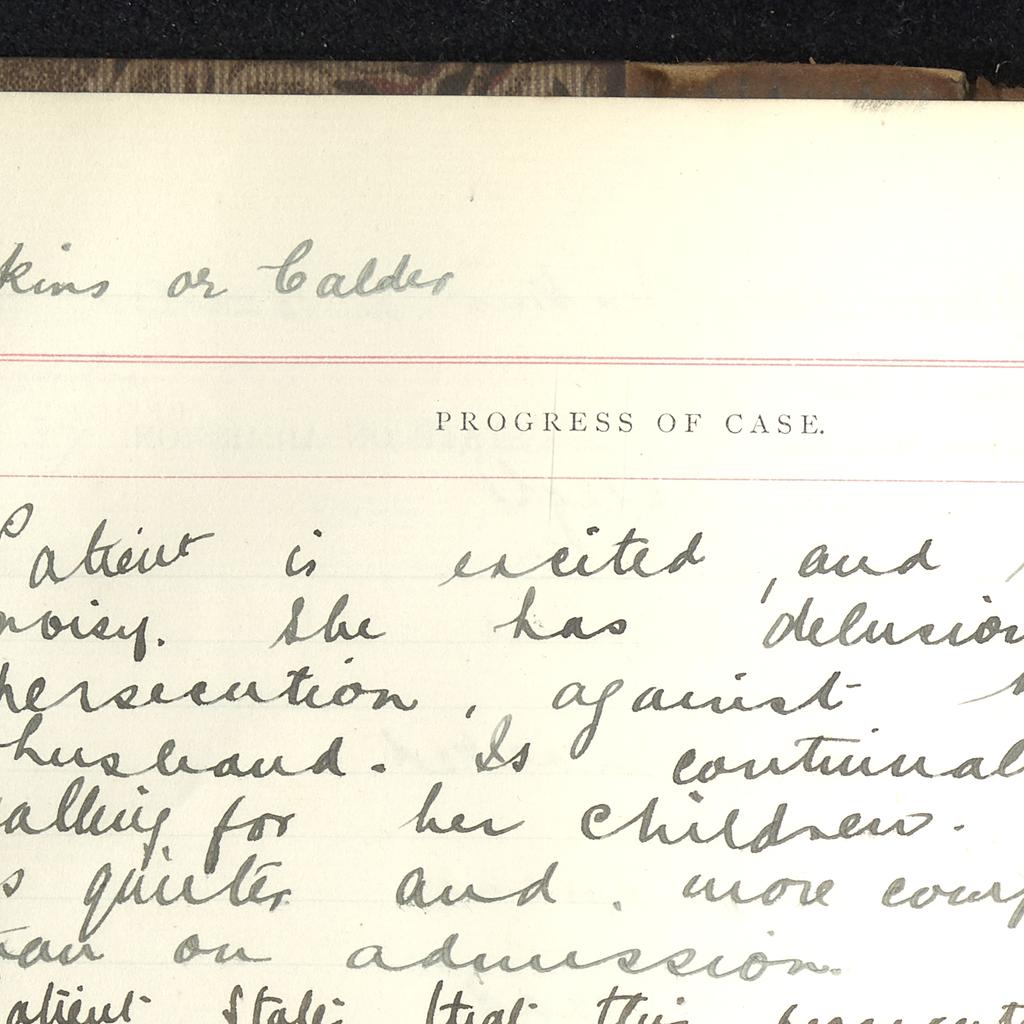 kins or Calder
PROGRESS OF CASE.
Patient is excited, and
noisy. She has delusion
persecution, against
husband. Is continual
calling for her children.
s quieter and more comp
than on admission.
Patient states that this